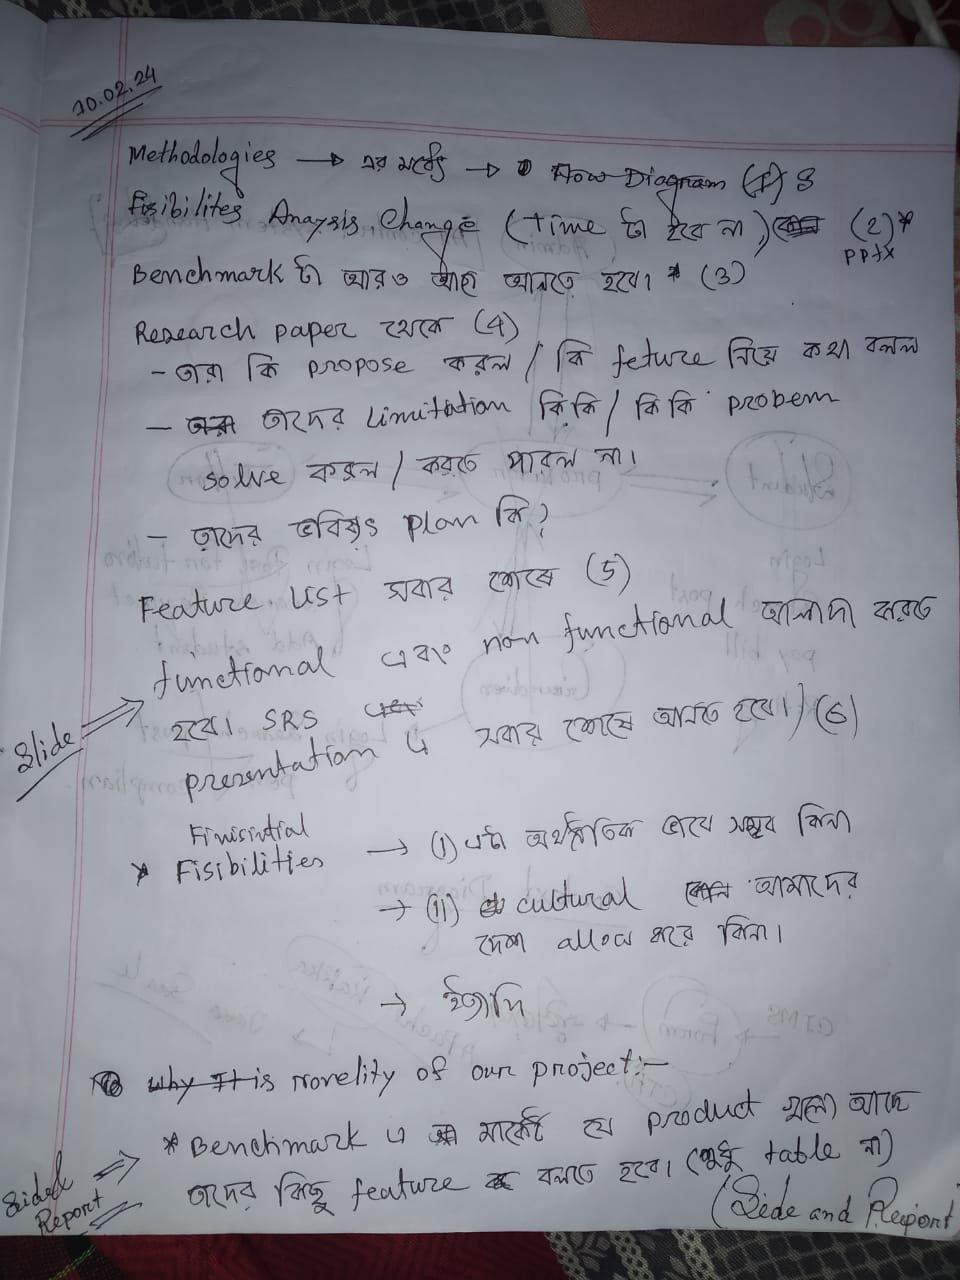 10.02.24
Methodologies → এর মধ্যে → Flow Diagram (1) S
Fisibilites Anaysis Change (Time টা হবে না) (2)*
pptx
Benchmark টা আরও আনতে হবে। * (3)
Research paper থেকে (4)
- তারা কি propose করল / কি feture নিয়ে কথা বলল
- তাদের Limitation কি কি / কি কি probem
solve করল / করতে পারল না।
- তাদের ভবিষ্যৎ plan কি?
Feature List সবার শেষে (5)
functional এবং non functional আলাদা করতে
হবে। SRS
Slide ⇒
presentation এ সবার শেষে আনতে হবে।) (6)
Finisintial
* Fisibilities → (i) এটা অর্থনৈতিক ভাবে সম্ভব কিনা
→ (ii) cultural আমাদের
দেশ allow করে কিনা।
→ ইত্যাদি
why It is novelity of our project:-
* Benchmark এ মার্কেটে যে product গুলো আছে
তাদের কিছু feature বলতে হবে। (শুধু table না)
Sidel Report ⇒
(Side and Report)